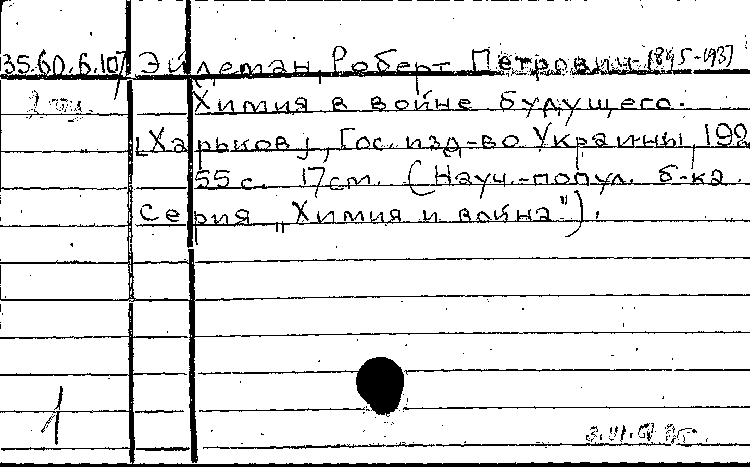 35.60.6.107 Эйдеман, Роберт Петрович 1895-1937
Химия в войне будущего.
[Харьков], Гос. изд-во Украины, 192
55 с. 17 см. (Науч.-попул. б-ка.
Серия „Химия и война").
1